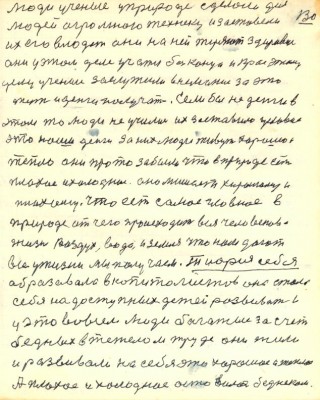 люди учение у природе сделали для
людей огромного технику и заставели
их его владет они на ней теряют здаровае
они у этом деле учати бы конца и
цели учение заслужили внемание за это
чуть и денги получат. Сели бы не денги в
этом то люди не учили их заставило
это наши денги за них люди живут харашо и
тепло они просто забыли что в природе ест
плахое и холодное. оно мишает харошаму и
тиохому. что ест самае главное в
природе от чего произходит вся человечея
жизн Ваздух, вода, и земля это нам дают
все у жизни мы получаем. Тиория себя
образавала в копитолистов она стала
себя на доступных детей развеват и
у это вовсем люди багатые за счет
бедных в тежолом труде они жили
и развивали на себя это харошае и теплое
А плахое и холодное аставила бедняком.